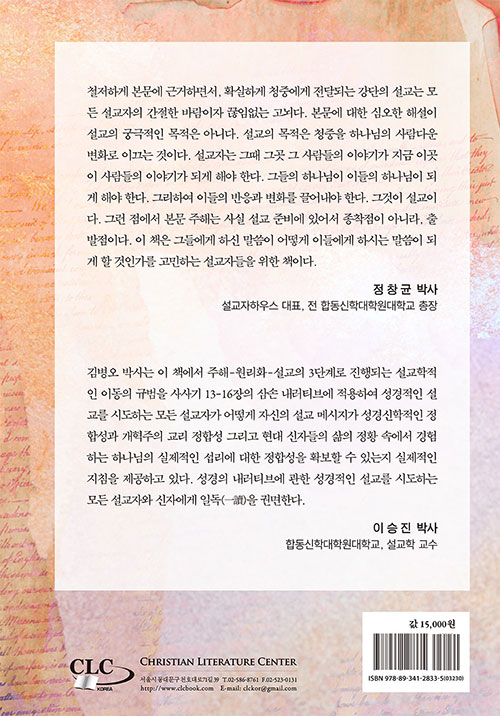 철저하게 본문에 근거하면서, 확실하게 청중에게 전달되는 강단의 설교는 모
든 설교자의 간절한 바람이자 끊임없는 고뇌다. 본문에 대한 심오한 해설이
설교의 궁극적인 목적은 아니다. 설교의 목적은 청중을 하나님의 사람다운
변화로 이끄는 것이다. 설교자는 그때 그곳 그 사람들의 이야기가 지금 이곳
이 사람들의 이야기가 되게 해야 한다. 그들의 하나님이 이들의 하나님이 되
게 해야 한다. 그리하여 이들의 반응과 변화를 끌어내야 한다. 그것이 설교이
다. 그런 점에서 본문 주해는 사실 설교 준비에 있어서 종착점이 아니라, 출
발점이다. 이 책은 그들에게 하신 말씀이 어떻게 이들에게 하시는 말씀이 되
게 할 것인가를 고민하는 설교자들을 위한 책이다.
정창균 박사
설교자하우스 대표, 전 합동신학대학원대학교 총장
김병오 박사는 이 책에서 주해-원리화-설교의 3단계로 진행되는 설교학적
인 이동의 규범을 사사기 13-16장의 삼손 내러티브에 적용하여 성경적인 설
교를 시도하는 모든 설교자가 어떻게 자신의 설교 메시지가 성경신학적인 정
합성과 개혁주의 교리 정합성 그리고 현대 신자들의 삶의 정황 속에서 경험
하는 하나님의 실제적인 섭리에 대한 정합성을 확보할 수 있는지 실제적인
지침을 제공하고 있다. 성경의 내러티브에 관한 성경적인 설교를 시도하는
모든 설교자와 신자에게 일독(一讀)을 권면한다.
이승진 박사
합동신학대학원대학교, 설교학 교수
값 15,000원
ISBN 978-89-341-2833-5(03230)
CLC
KOREA
CHRISTIAN LITERATURE CENTER
서울시 동대문구 천호대로71길 39 T.02-586-8761 F.02-523-0131
http://www.clcbook.com E-mail: clckor@gmail.com